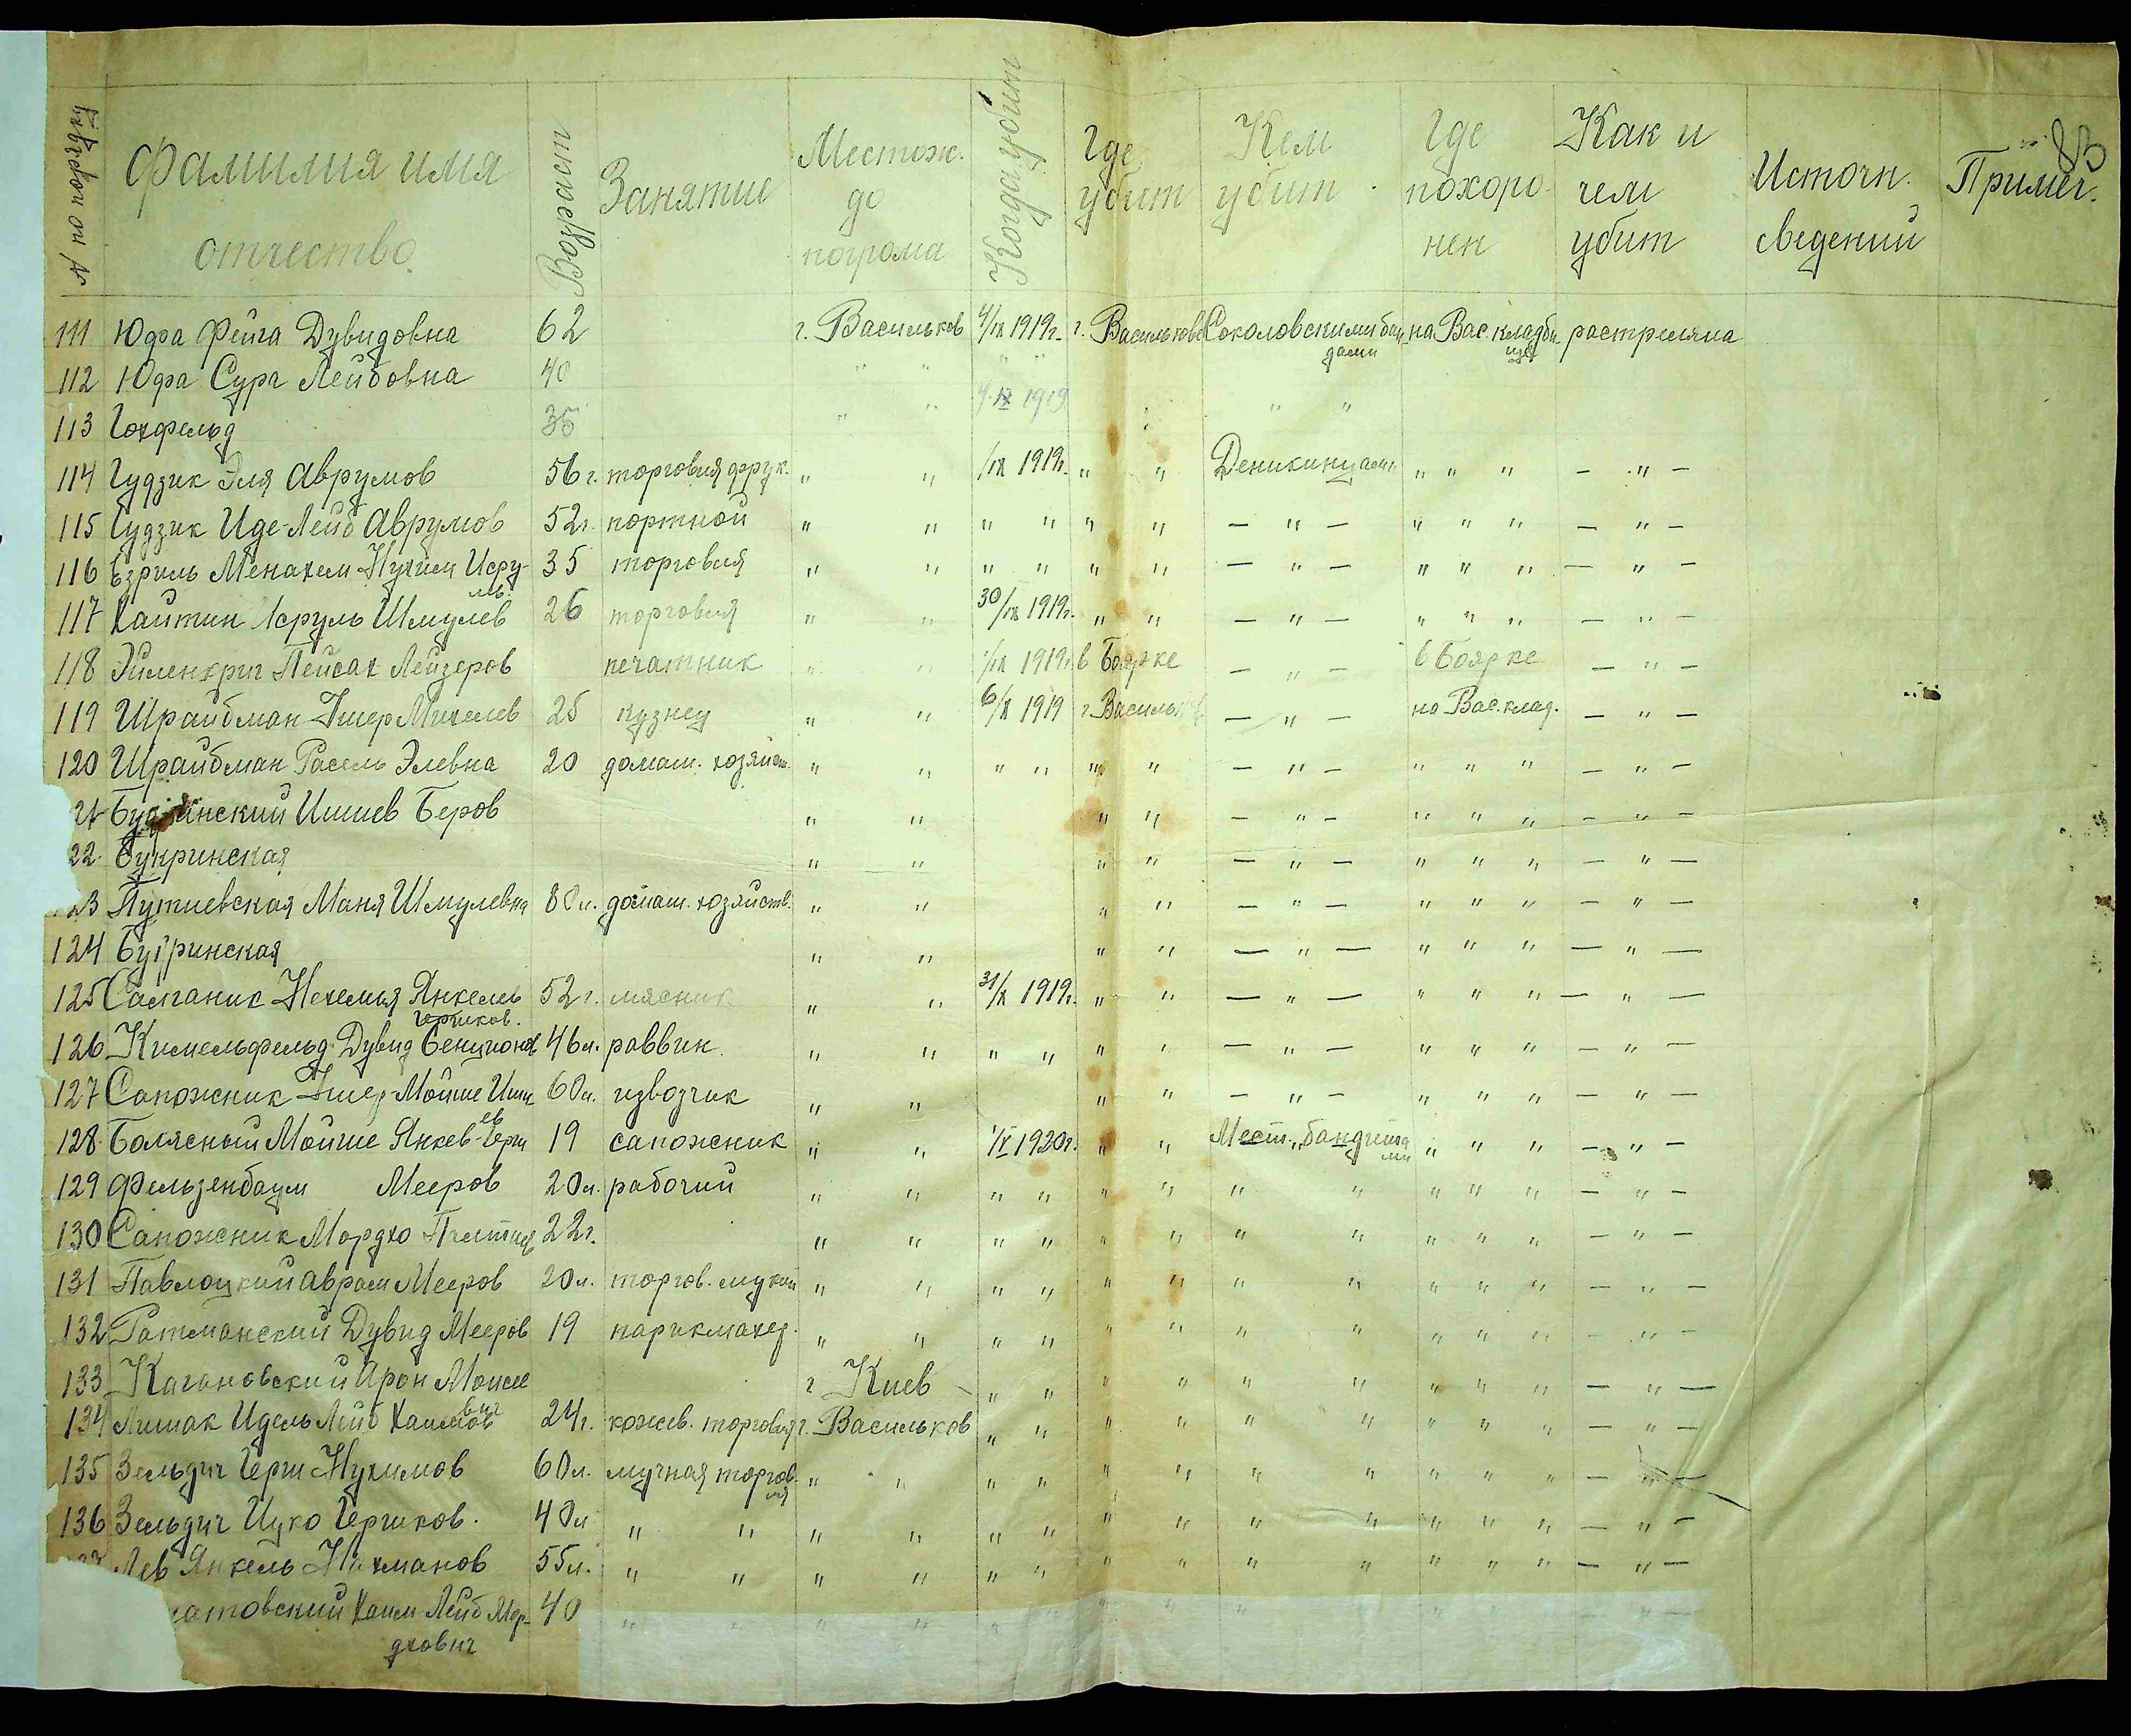 83
№ по порядку Фамилия имя отчество Возраст Занятие Местож. до погрома Когда убит Где убит Кем убит Где похоро- нен Как и чем убит Источн. сведений Примеч.
111 Юфа Фейга Дувидовна 62 г. Васильков 4/IX 1919г. г. Васильков Соколовскими бан- дами на Вас. кладби- ще растреляна
112 Юфа Сура Лейбовна 40 " " " "
113 Гохфельд 35 " " 4.IX 1919 " " "
114 Гудзик Эля Аврумов 56 г. торговля фрук. " " 1/IX 1919г. " " Деникинцами " " " — " —
115 Гудзик Иде-Лейб Аврумов 52г. портной " " " " " " — " — " " " — " —
116 Езриль Менахем-Нухим Исру- лев. 35 торговля " " " " " " — " — " " " — " —
117 Хайтин Исруль Шмулев 26 торговля " " 30/IX 1919г. " " — " — " " " — " —
118 Эйленкриг Пейсах Лейзеров печатник " " 1/IX 1919г. в Боярке — " — в Боярке — " —
119 Шрайбман Ушер Михелев 25 кузнец " " 6/X 1919 г. Васильков — " — на Вас. клад. — " —
120 Шрайбман Расель Элевна 20 домаш. хозяйст. " " " " " " — " — " " " — " —
21 Бу инский Ишиев Беров " " " " — " — " " " — " —
22. Букринская " " " " — " — " " " — " —
23 Путиевская Маня Шмулевна 80л. домаш. хозяйств. " " " " — " — " " " — " —
124 Бугринская " " " " — " — " " " — " —
125 Салганик Нехемья Янкелев 52г. мясник " " 31/X 1919г. " " — " — " " " — " —
126 Кимельфельд Дувид Бенционов Гершков. 46л. раввин. " " " " " " — " — " " " — " —
127 Сапожник Ушер-Мойше Иш 60л. извозчик " " " " — " — " " " — " —
128. Болясный Мойше Янкев-Герш ев 19 сапожник " " 1/V 1920г. " " Мест. бандита ми " " " — " —
129 Фельзенбаум Мееров 20л. рабочий " " " " " " " " " " " — " —
130 Сапожник Мордхо 22г. " " " " " " " " " " " — " —
131 Павлоцкий Аврам Мееров 20л. торгов. мукой " " " " " " " " " " " — " —
132 Ратманский Дувид Мееров 19 парикмахер. " " " " " " " " " " " — " —
133 Кагановский Арон Моисе вич г Киев — " " " " " " " " " — " —
134 Лишак Идель Лейб Хаимов 24г. кожев. торговля г. Васильков " " " " " " " " " — " —
135 Зельдич Герш Нухимов 60л. мучная торгов- ля " " " " " " " " " " " — " —
136 Зельдич Ицко Гершков. 40л " " " " " " " " " " " " " — " —
Лев Янкель Нахманов 55л. " " " " " " " " " " " " " — " —
атовский Хаим-Лейб Мор- дхович 40 " " " " " " " " " " " — " —